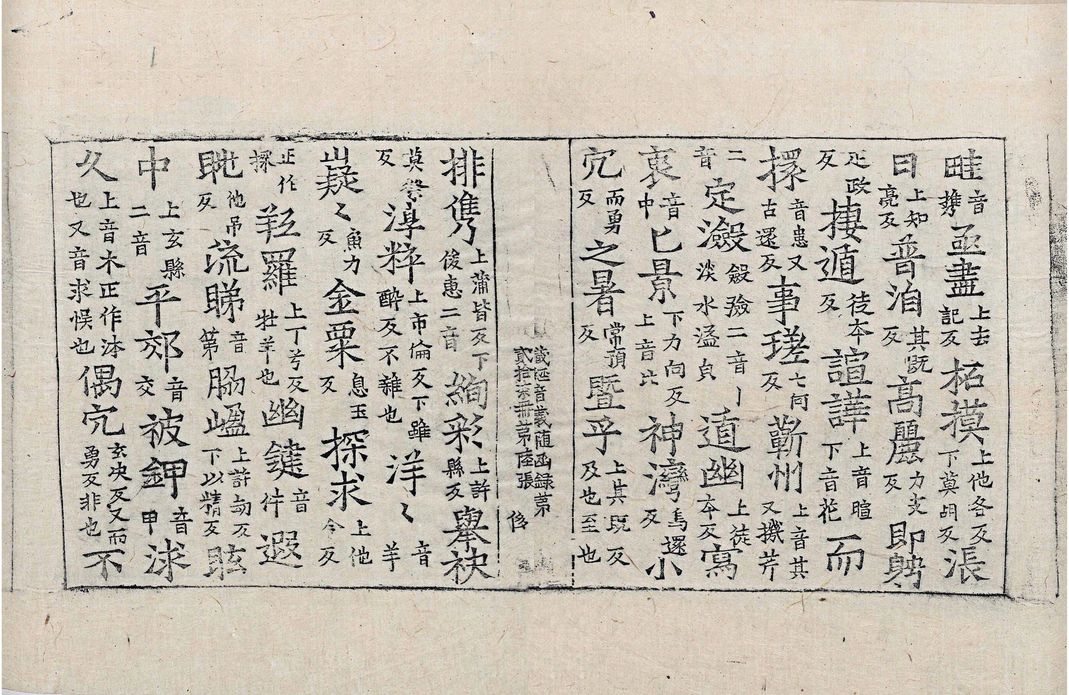 畦音攜亟盡上去記反柘摸上他各反下莫胡反漲
日上知亮反普洎其既反高麗力支反即
疋政反捿遁徒本反諠譁上音暄下音花而
摞音患又古還反事瑳七何反蘄州上音其又機芹
二音定瀲㪘險二音丨淡水溢皃遁幽上徒本反寫
衷音中匕景下力向反上音比神灣烏還反小
宂而勇反之暑常預反曁乎上其既反及也至也
藏經音義隨函録第
貳拾柒冊第陸張 侈
排儁上蒲皆反下俊惠二音絢彩上許縣反舉袂
莫祭反淳粹上市倫反下雖醉反不雜也洋〻音羊
嶷〻魚力反金粟息玉反探求上他含反
正作探羝羅上丁兮反牡羊也幽鍵音件遐
眺他吊反流睇音第上許勿反下以精反眩
中上玄縣二音平郊音交被鉀音甲浗
久上音木正作沐也又音求悮也偶宂玄决反又而勇反非也不